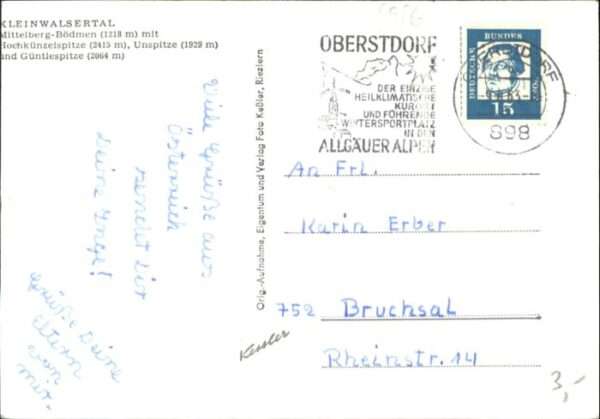 KLEINWALSERTAL
Mittelberg-Bödmen (1218 m) mit
Hochkünzelspitze (2415 m), Unspitze (1929 m)
und Güntlespitze (2064 m)
Viele Grüße aus
Österreich
sendet Dir
Deine Inge!
Grüße Deine
Eltern
von
mir.
Orig.-Aufnahme, Eigentum und Verlag Foto Keßler, Riezlern
Kessler
OBERSTDORF
DER EINZIGE
HEILKLIMATISCHE
KURORT
UND FÜHRENDE
WINTERSPORTPLATZ
IN DEN
ALLGÄUER ALPEN
OBERSTDORF
898
DEUTSCHE
BUNDES
15
An Frl.
Karin Erber
752 Bruchsal
Rheinstr. 14
3,-